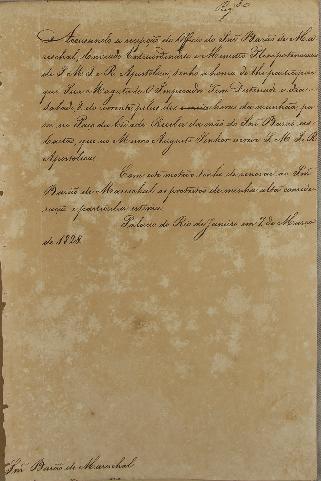 Accusando a recepção do Officio do Snr Barão de Ma-
reschal, Enviado Extraordinario e Ministro Plenipotenciario
de S. M. I. e R. Apostolica, tenho a honra de lhe participar
que Sua Magestade O Imperador Tem Destinado o dia
Sabado 8 do corrente pelas dez horas da manhãa, pa-
ra no Paço da Cidade Receber da mão do Snr Barão, as
Cartas, que ao Mesmo Augusto Senhor envia S. M. I. e R.
Apostolica.
Com este motivo tenho de renovar ao Snr
Barão de Mareschal os protestos de minha alta conside-
ração e particular estima.
Palacio do Rio de Janeiro em 7 de Março
de 1828.
Snr Barão de Mareschal